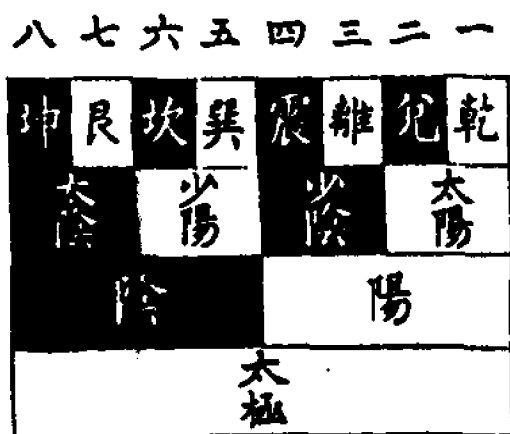 八 七 六 五 四 三 二 一
坤 艮 坎 巽 震 離 兌 乾
太陰 少陽 少陰 太陽
陰 陽
太極